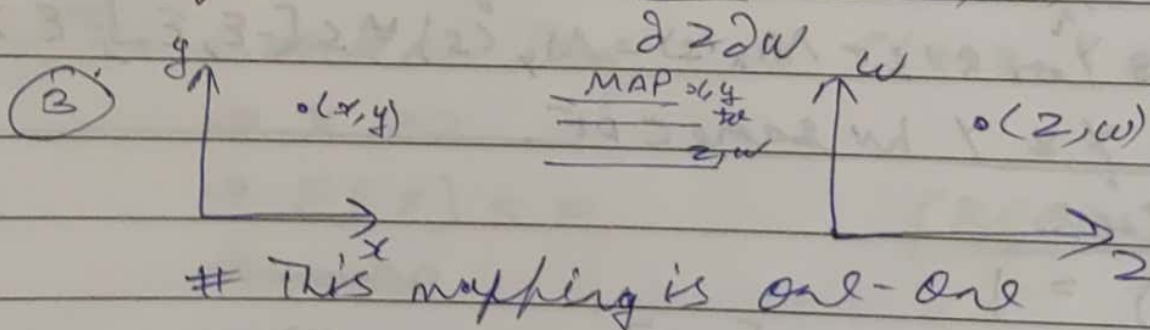 ∂z∂w
③ y •(x,y) MAP x,y to z,w w •(z,w)
x z
# This mapping is one-one